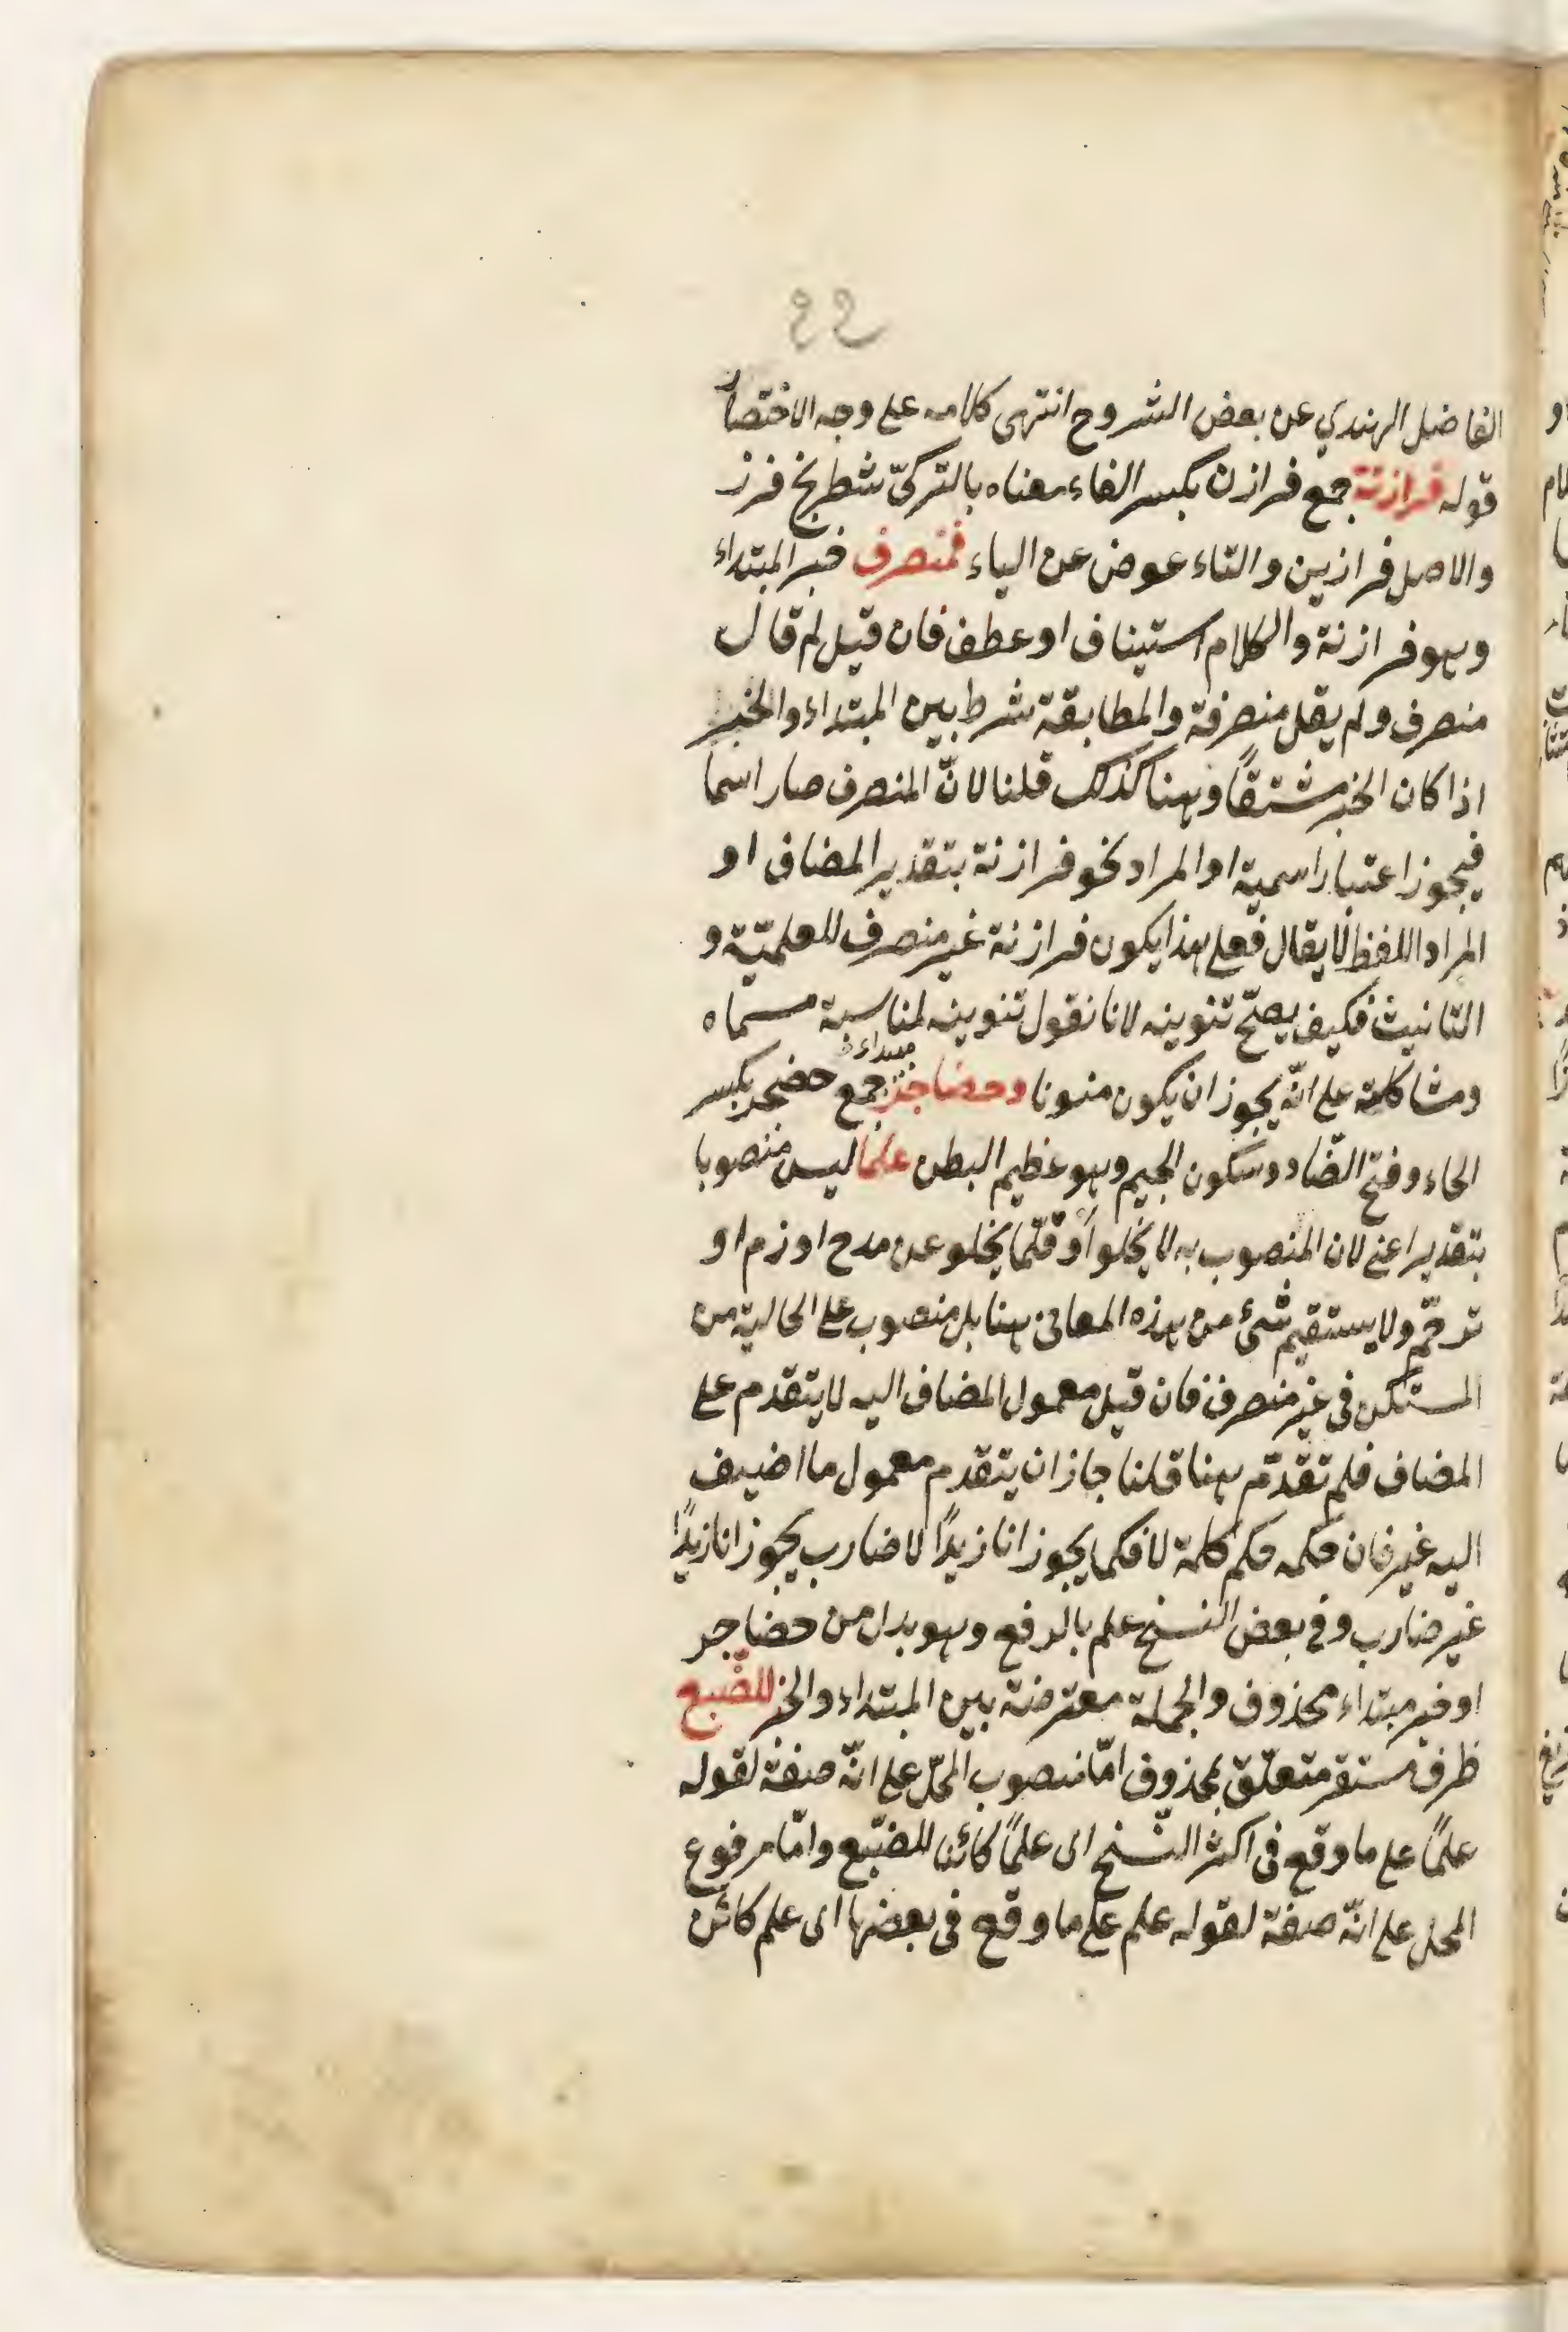 ٤٤
الفاضل الهندي عن بعض الشروح انتهى كلامه على وجه الاختصار
قوله فرازنة جمع فرازن بكسر الفاء معناه بالتركىّ شطرنج فرز
والاصل فرازين والتاء عوض عن الياء فمنصرف خبر المبتداء
وهو فرازنة والكلام استيناف او عطف فان قيل لم قال
منصرف ولم يقل منصرفة والمطابقة شرط بين المبتداء والخبر
اذا كان الخبر مشتقاً وههنا كذلك قلنا لانّ المنصرف صار اسما
فيجوز اعتبار اسمية او المراد نحو فرازنة بتقدير المضاف او
المراد اللفظ لا يقال فعلى هذا يكون فرازنة غير منصرف للعلميّة و
التانيث فكيف يصحّ تنوينه لانا نقول تنوينه لمناسبة مسماه
ومشاكلته على انّه يجوز ان يكون منونا وحضاجر مبتداء جمع حضجر بكسر
الحاء وفتح الضّاد وسكون الجيم وهو عظيم البطن علما ليس منصوبا
بتقدير اعنى لان المنصوب به لا يخلوا او قلّما يخلو عن مدح او زم او
ترحّم ولا يستقيم شئ من هذه المعانى ههنا بل منصوب على الحالية من
المستكن فى غير منصرف فان قيل معمول المضاف اليه لا يتقدم على
المضاف فلم تقدّم ههنا قلنا جاز ان يتقدم معمول ما اضيف
اليه غير فان حكمه حكم كلمة لا فكما يجوز انا زيداً لا ضارب يجوز انا زيداً
غير ضارب وفى بعض النسخ علم بالرفع وهو بدل من حضاجر
او خبر مبتداء محذوف والجملة معترضة بين المبتداء والخبر للضّبع
ظرف مستقر متعلّق بمحذوف امّا منصوب المحلّ على انّه صفة لقوله
علماً على ما وقع فى اكثر النّسخ اى علماً كائنا للضبّع وامّا مرفوع
المحل على انّه صفة لقوله علم على ما وقع فى بعضها اى علم كائن